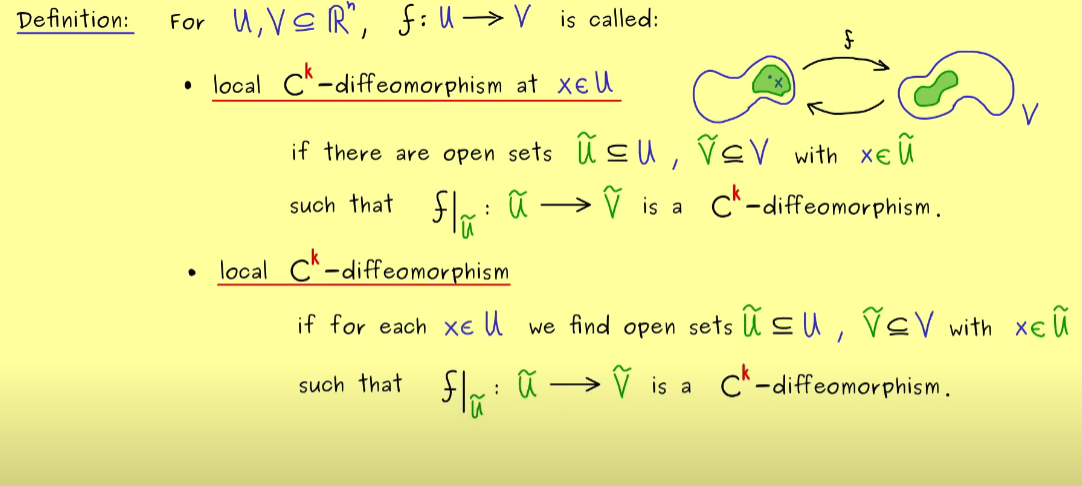 Definition: For U, V ⊆ ℝⁿ, f: U → V is called:
f
• local Cᵏ-diffeomorphism at x∈U
x
V
if there are open sets Ũ ⊆ U, Ṽ ⊆ V with x∈Ũ
such that f|_Ũ : Ũ → Ṽ is a Cᵏ-diffeomorphism.
• local Cᵏ-diffeomorphism
if for each x∈U we find open sets Ũ ⊆ U, Ṽ ⊆ V with x∈Ũ
such that f|_Ũ : Ũ → Ṽ is a Cᵏ-diffeomorphism.